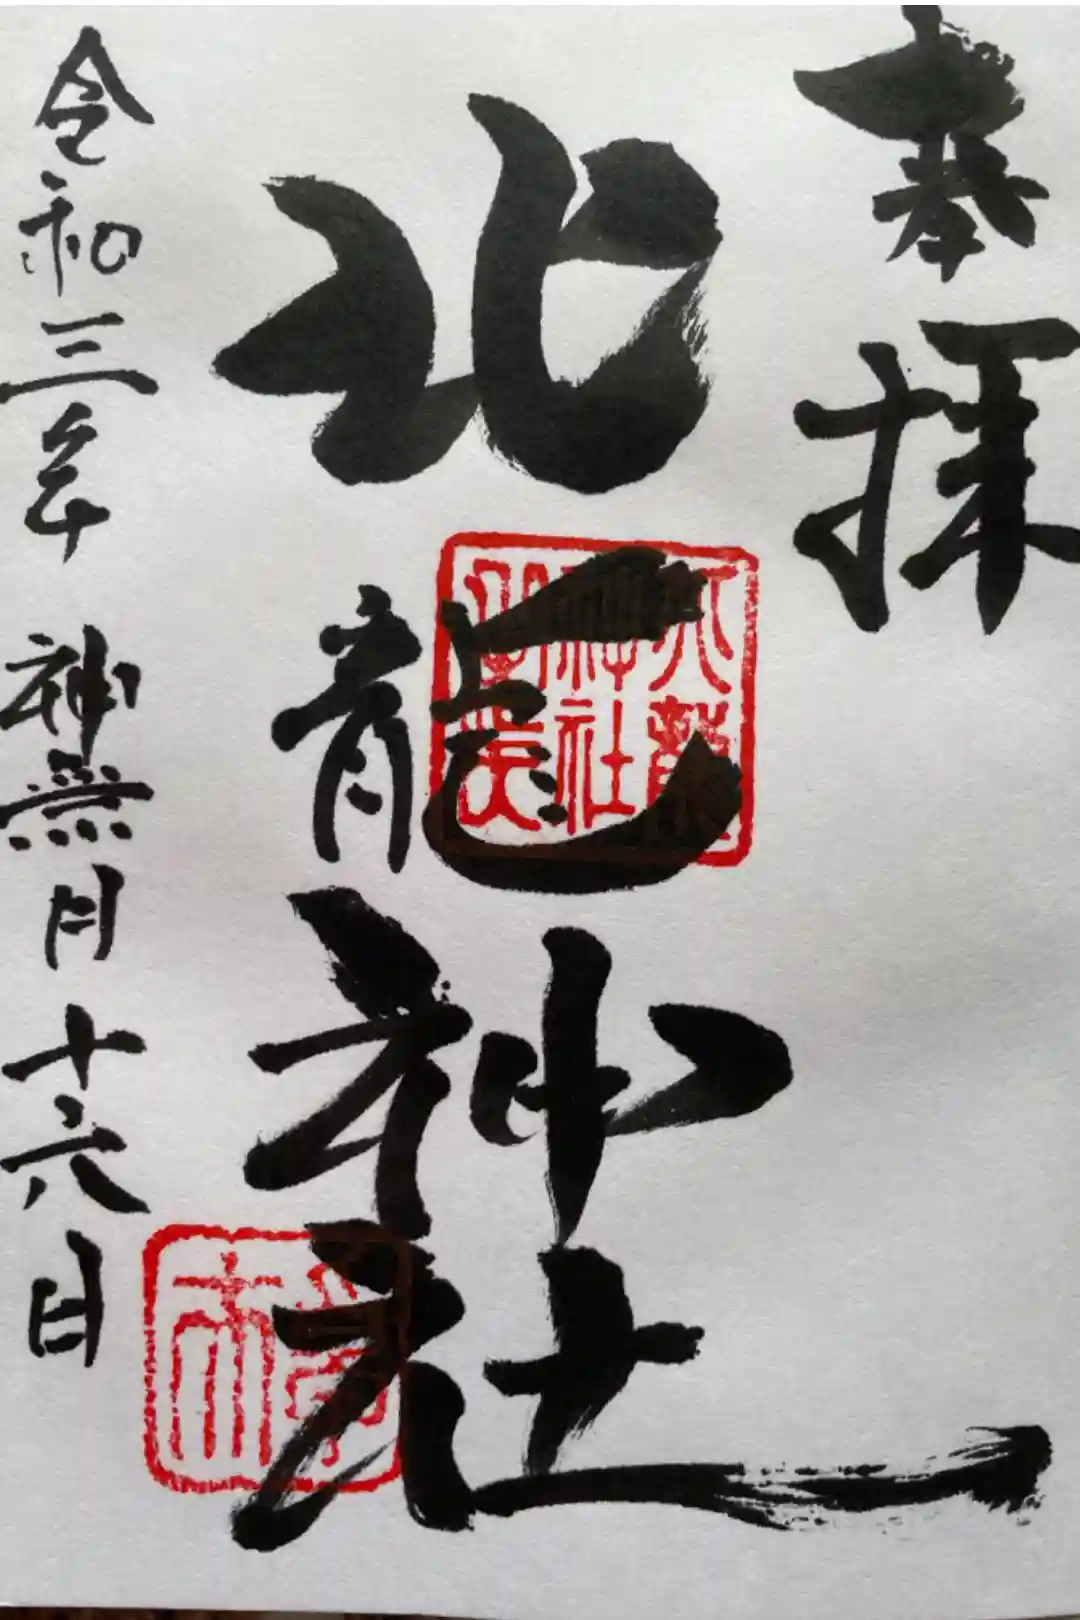 奉拝
北龍神社
令和三年 神無月十六日
神社